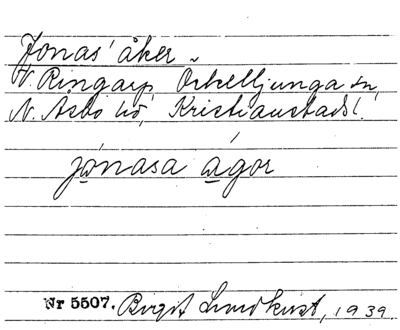 Jonas' åker
V. Ringarp, Örkelljunga sn,
N. Åsbo hd, Kristianstads l.
jónasa ågor
Nr 5507. Birgit Lundkvist, 1939.